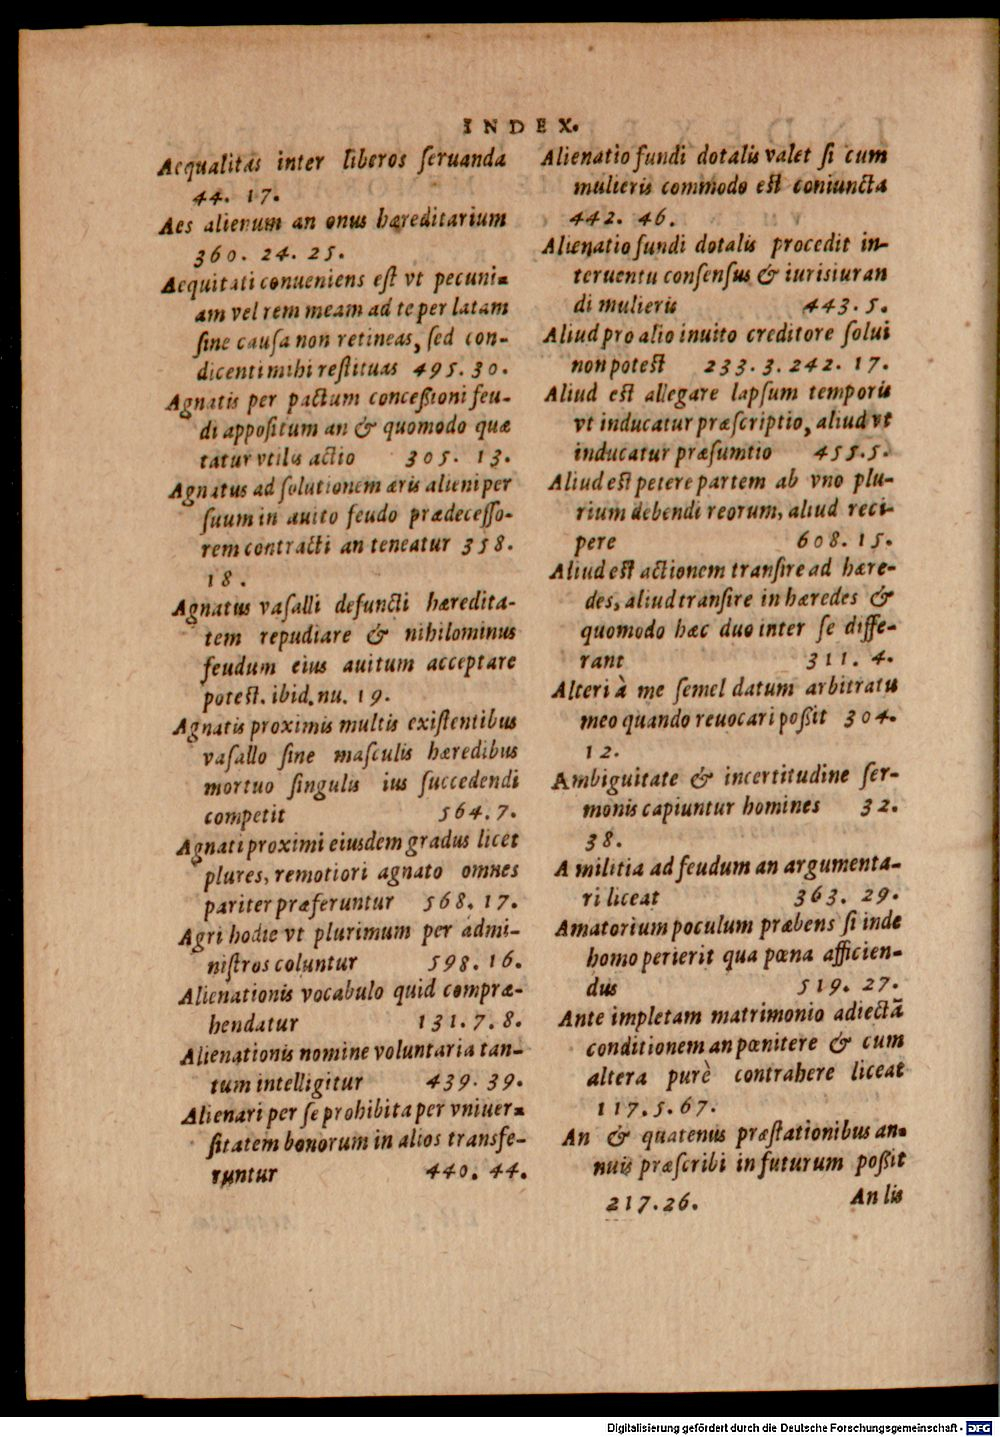 INDEX.
Aequalitas inter liberos ſeruanda
44. 17.
Aes alienum an onus hæreditarium
360. 24. 25.
Aequitati conueniens eſt vt pecuni-
am vel rem meam ad te per latam
ſine cauſa non retineas, ſed con-
dicenti mihi reſtituas 495. 30.
Agnatis per pactum conceßioni feu-
di appoſitum an & quomodo quæ
tatur vtilis actio 305. 13.
Agnatus ad ſolutionem æris alieni per
ſuum in auito feudo prædeceſſo-
rem contracti an teneatur 358.
18.
Agnatus vaſalli defuncti hæredita-
tem repudiare & nihilominus
feudum eius auitum acceptare
poteſt. ibid. nu. 19.
Agnatis proximis multis exiſtentibus
vaſallo ſine maſculis hæredibus
mortuo ſingulis ius ſuccedendi
competit 564. 7.
Agnati proximi eiusdem gradus licet
plures, remotiori agnato omnes
pariter præferuntur 568. 17.
Agri hodie vt plurimum per admi-
niſtros coluntur 598. 16.
Alienationis vocabulo quid compræ-
hendatur 131. 7. 8.
Alienationis nomine voluntaria tan-
tum intelligitur 439. 39.
Alienari per ſe prohibita per vniuer-
ſitatem bonorum in alios transfe-
runtur 440. 44.
Alienatio fundi dotalis valet ſi cum
mulieris commodo eſt coniuncta
442. 46.
Alienatio fundi dotalis procedit in-
teruentu conſenſus & iurisiuran
di mulieris 443. 5.
Aliud pro alio inuito creditore ſolui
non poteſt 233. 3. 242. 17.
Aliud eſt allegare lapſum temporis
vt inducatur præſcriptio, aliud vt
inducatur præſumtio 455. 5.
Aliud eſt petere partem ab vno plu-
rium debendi reorum, aliud reci-
pere 608. 15.
Aliud eſt actionem tranſire ad hære-
des, aliud tranſire in hæredes &
quomodo hæc duo inter ſe diffe-
rant 311. 4.
Alteri à me ſemel datum arbitratu
meo quando reuocari poßit 304.
12.
Ambiguitate & incertitudine ſer-
monis capiuntur homines 32.
38.
A militia ad feudum an argumenta-
ri liceat 363. 29.
Amatorium poculum præbens ſi inde
homo perierit qua pœna afficien-
dus 519. 27.
Ante impletam matrimonio adiectã
conditionem an pœnitere & cum
altera purè contrahere liceat
117. 5. 67.
An & quatenus præſtationibus an-
nuis præſcribi in futurum poßit
217. 26. An lis
Digitalisierung gefördert durch die Deutsche Forschungsgemeinschaft - DFG